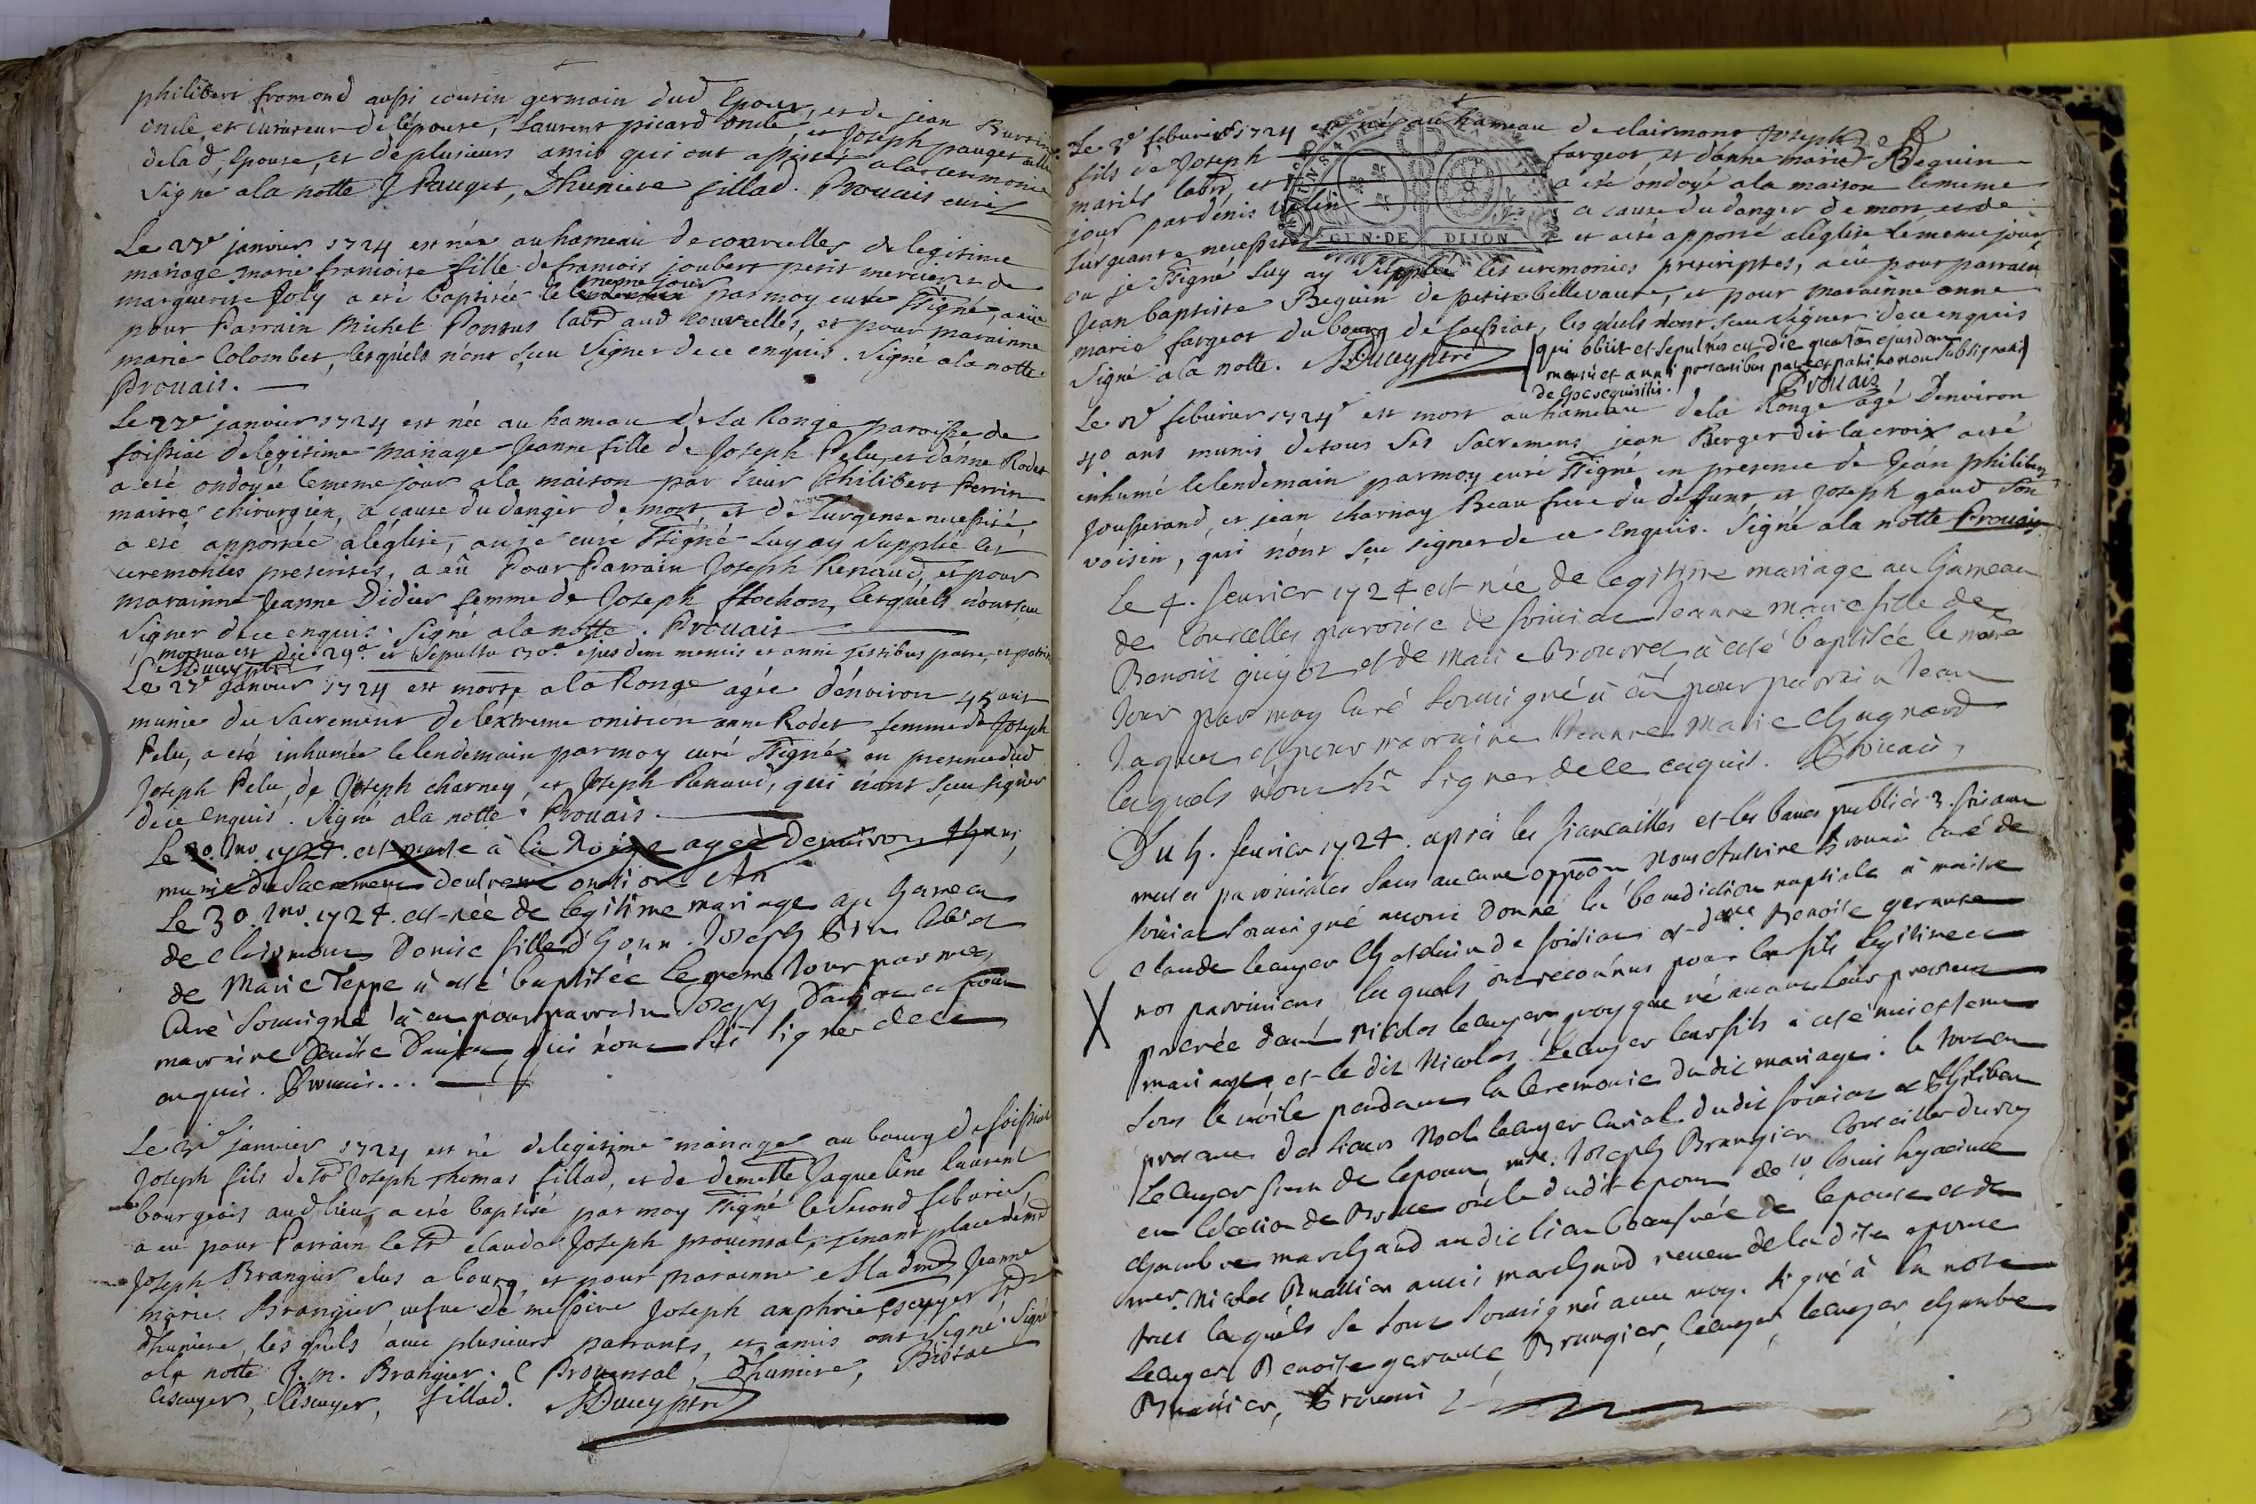 philibert fromond aussi cousin germain dud Epoux, et de jean
oncle et curateur de lépouse, Laurent picard oncle, et Joseph pauget
delad, Epouse, et de plusieurs amis qui ont assisté a la ceremonie
Signé ala notte J Pauget, Dhumiere fillad. Prouais curé
Le 27e janvier 1724 est née au hameau de courcelles de legitime
mariage marie francoise fille de francois joubert petit mercier et de
marguerite Joly a eté baptisée le meme jour par moy curé ssigné, a eu
pour Parrain Michel Ponsus labr aud courcelles, et pour marainne
marie Colombet, lesquels n'ont sceu signer de ce enquis. Signé ala notte
Prouais.
Le 27e janvier 1724 est née au hameau de La Ronge paroisse de
foissiac de legitime mariage Jeanne fille de Joseph Pelu, et d'anne Rodet
a eté ondoyée le meme jour ala maison par sieur Philibert Perrin
maitre chirurgien, a cause du danger de mort et de l'urgente necessité,
a eté apportée aléglise, ou je curé ssigné luy ay supplée les
ceremonies prescrites, a eû Pour Parrain Joseph Renaud, et pour
marainne Jeanne Didier femme de Joseph flochon, lesquels n'ont sceu
signer de ce enquis. Signé ala notte. Prouais
mortua est die 29a et sepulta 30a ejusdem mensis et anni testibus patre, et patrin
Le 27e janvier 1724 est morte a la Ronge agée d'environ 45 ans
munie du sacrement de lextreme onction anne Rodet femme de Joseph
Pelu, a eté inhumée le lendemain par moy curé ssigné en presence dud
Joseph Pelu, de Joseph charney, et Joseph Renaud, qui n'ont sceu signer
de ce enquis. Signé ala notte. Prouais.
Le 30. Jno. 1724. est morte à la Ronge agée denviron ans
munie du Sacrement dextreme onction An
Le 30. Jno. 1724. est née de legitime mariage au hameau
de clairmont Denise fille d'honn. Joseph et
de Marie Teppe a esté baptisée le meme Jour par moy
Curé Soussigné a eu pour parrain Joseph et pour
marraine Denise qui n'ont sceu signer de ce
enquis. Prouais...
Le 31e janvier 1724 est né de legitime mariage au bourg de foissiat
Joseph fils de Sr Joseph Thomas fillad, et de demelle Jaqueline laurent
bourgeois aud lieu, a eté baptisé par moy ssigné le second feburier,
a eu pour Parrain le Sr claude Joseph prouensal, tenant place de mr
Joseph Brangier elus a bourg, et pour marainne Madme Jeanne
marie Brangier vefue de messire Joseph anphrie Escuyer Sr
Dhumiere, les quels auec plusieurs parents, et amis ont signé. Signé
ala notte J. m. Brangier. C Prouensal, Dhumiere,
Lescuyer, Lescuyer, fillad. MDucy ptre
Le 3e feburier 1724 est né au hameau de clairmont Joseph
fils de Joseph fargeot, et d'anne marie Beguin
mariés labrs, et a eté ondoyé ala maison le meme
jour par dénis a cause du danger de mort et de
l'urgeante necessité et a eté apporté aléglise le meme jour
ou je ssigné luy ay supplée les ceremonies prescriptes, a eu pour parrain
Jean baptiste Beguin de petite belleuaure, et pour marainne anne
marie fargeot du bourg de foissiat, les quels n'ont sceu signer de ce enquis
Signé ala notte. MDucy ptre qui obiit et sepultus est die quarta ejusdem
mensis et anni presentibus patre et patrino non subsignatis
de hoc requisitis. Prouais
Le 2e feburier 1724 est mort au hameau de la Ronge agé d'environ
40 ans munis de tous ses sacremens jean Berger dit lacroix a eté
inhumé le lendemain par moy curé ssigné en presence de Jean philibert
Jousserand, et jean charnay Beau frere du deffunt, et Joseph gaud son
voisin, qui n'ont sceu signer de ce enquis. Signé ala notte Prouais
Le 4. feurier 1724 est née de legitime mariage au hameau
de Courcelles paroisse de foissiac Jeanne Marie fille de
Benoit guyot et de Marie Brourret à esté baptisée le meme
Jour par moy Curé Soussigné a eu pour parrain Jean
Jaquet et pour marraine Jeanne Marie Chugnard
lesquels n'ont sceu signer de ce enquis. Prouais,
Du 5. feurier 1724. aprés les fiancailles et les bancs publiés 3. fois aux
messes paroissiales sans aucune oppõon Nous Antoine Prouais Curé de
foissiac soussigné auons donné la benediction nuptiale à maitre
claude lescuyer Chatelain de foissiac et dme Benoite geruaise
nos parroissiens, lesquels ont reconnus pour leur fils legitime et
procrée d'eux Nicolas lescuyer, quoyque né auant leur present
mariage, et le dit Nicolas Lescuyer leur fils a esté mis et tenu
sous le voile pendant la ceremonie dudit mariage. le tout en
presence des sieurs Noel lescuyer curial dudit foissiac et Philibert
Lescuyer frere de lepoux, mre. Joseph Brangier Conseiller du roy
en lelection de Bresse oncle dudit epoux de Sr louis hyacinte
chambre marchand audit lieu beaufrére de lepouse et de
mre. Nicolas Bruattier aussi marchand neueu de ladite epouse
tous lesquels se sont soussignés auec moy. signé à la note
Lescuyer, Benoite geruaise, Brangier, lescuyer, lescuyer, chambre
Prouais
X
GEN·DE DIJON